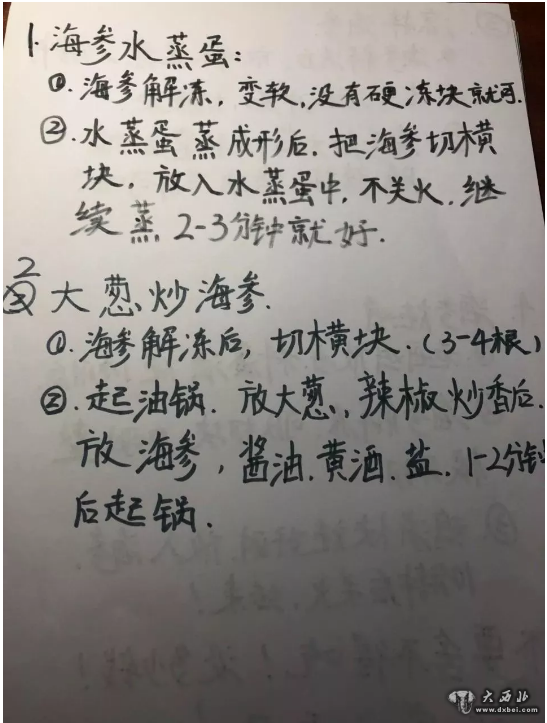 1.海参水蒸蛋:
①.海参解冻,变软,没有硬冻块就可.
②.水蒸蛋蒸成形后.把海参切横
块,放入水蒸蛋中,不关火.继
续蒸2-3分钟就好.
2大葱炒海参.
①.海参解冻后,切横块.(3-4根)
②.起油锅.放大葱,辣椒炒香后.
放海参,酱油.黄酒.盐.1-2分钟
后起锅.
大西北
www.dxbei.com